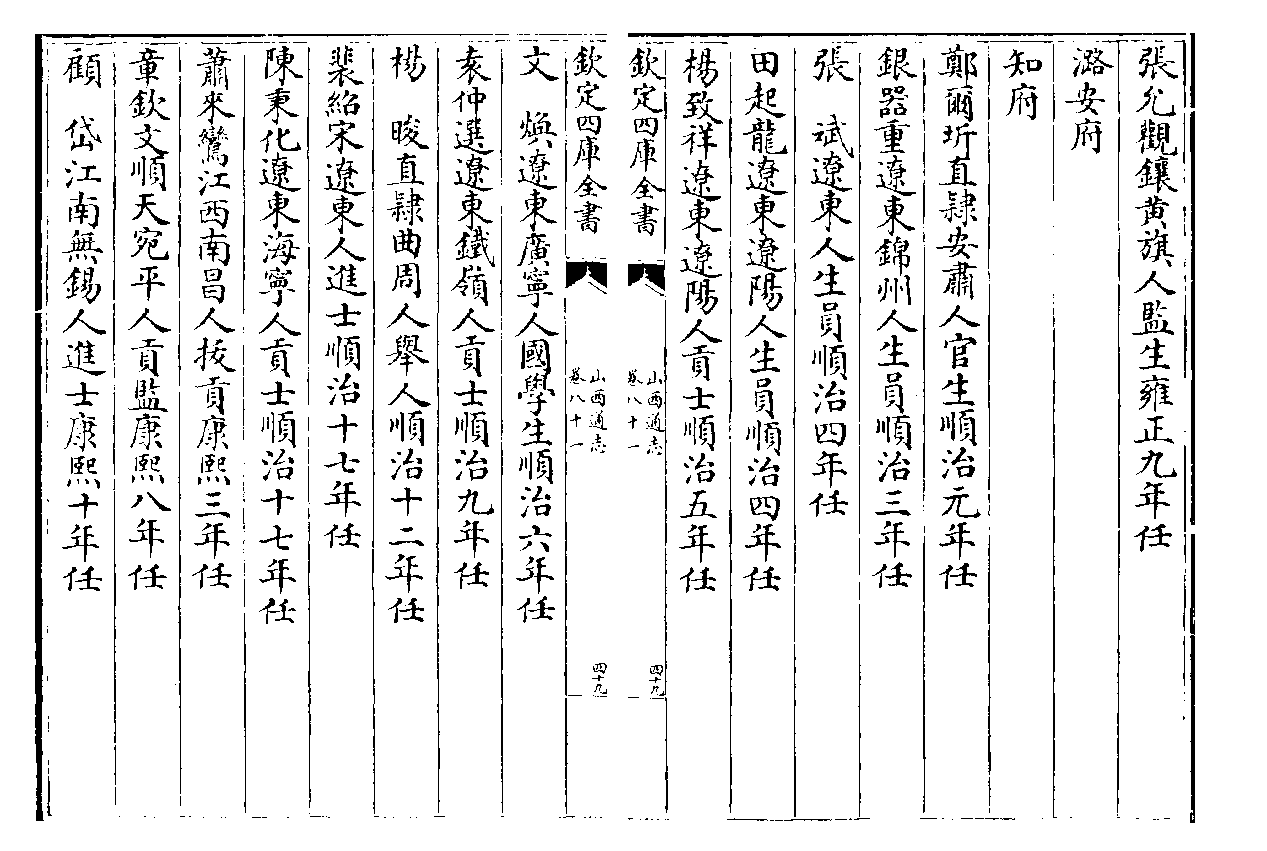 張允觀鑲黄旗人監生雍正九年任
潞安府
知府
鄭爾圻直隷安肅人官生順治元年任
銀器重遼東錦州人生員順治三年任
張　斌遼東人生員順治四年任
田起龍遼東遼陽人生員順治四年任
楊致祥遼東遼陽人貢士順治五年任
欽定四庫全書
山西通志
卷八十一
四十九
欽定四庫全書
山西通志
卷八十一
四十九
文　煥遼東廣寧人國學生順治六年任
袁仲選遼東鐵嶺人貢士順治九年任
楊　晙直隷曲周人舉人順治十二年任
裴紹宋遼東人進士順治十七年任
陳秉化遼東海寧人貢士順治十七年任
蕭來鸞江西南昌人拔貢康熙三年任
章欽文順天宛平人貢監康熙八年任
顧　岱江南無錫人進士康熙十年任